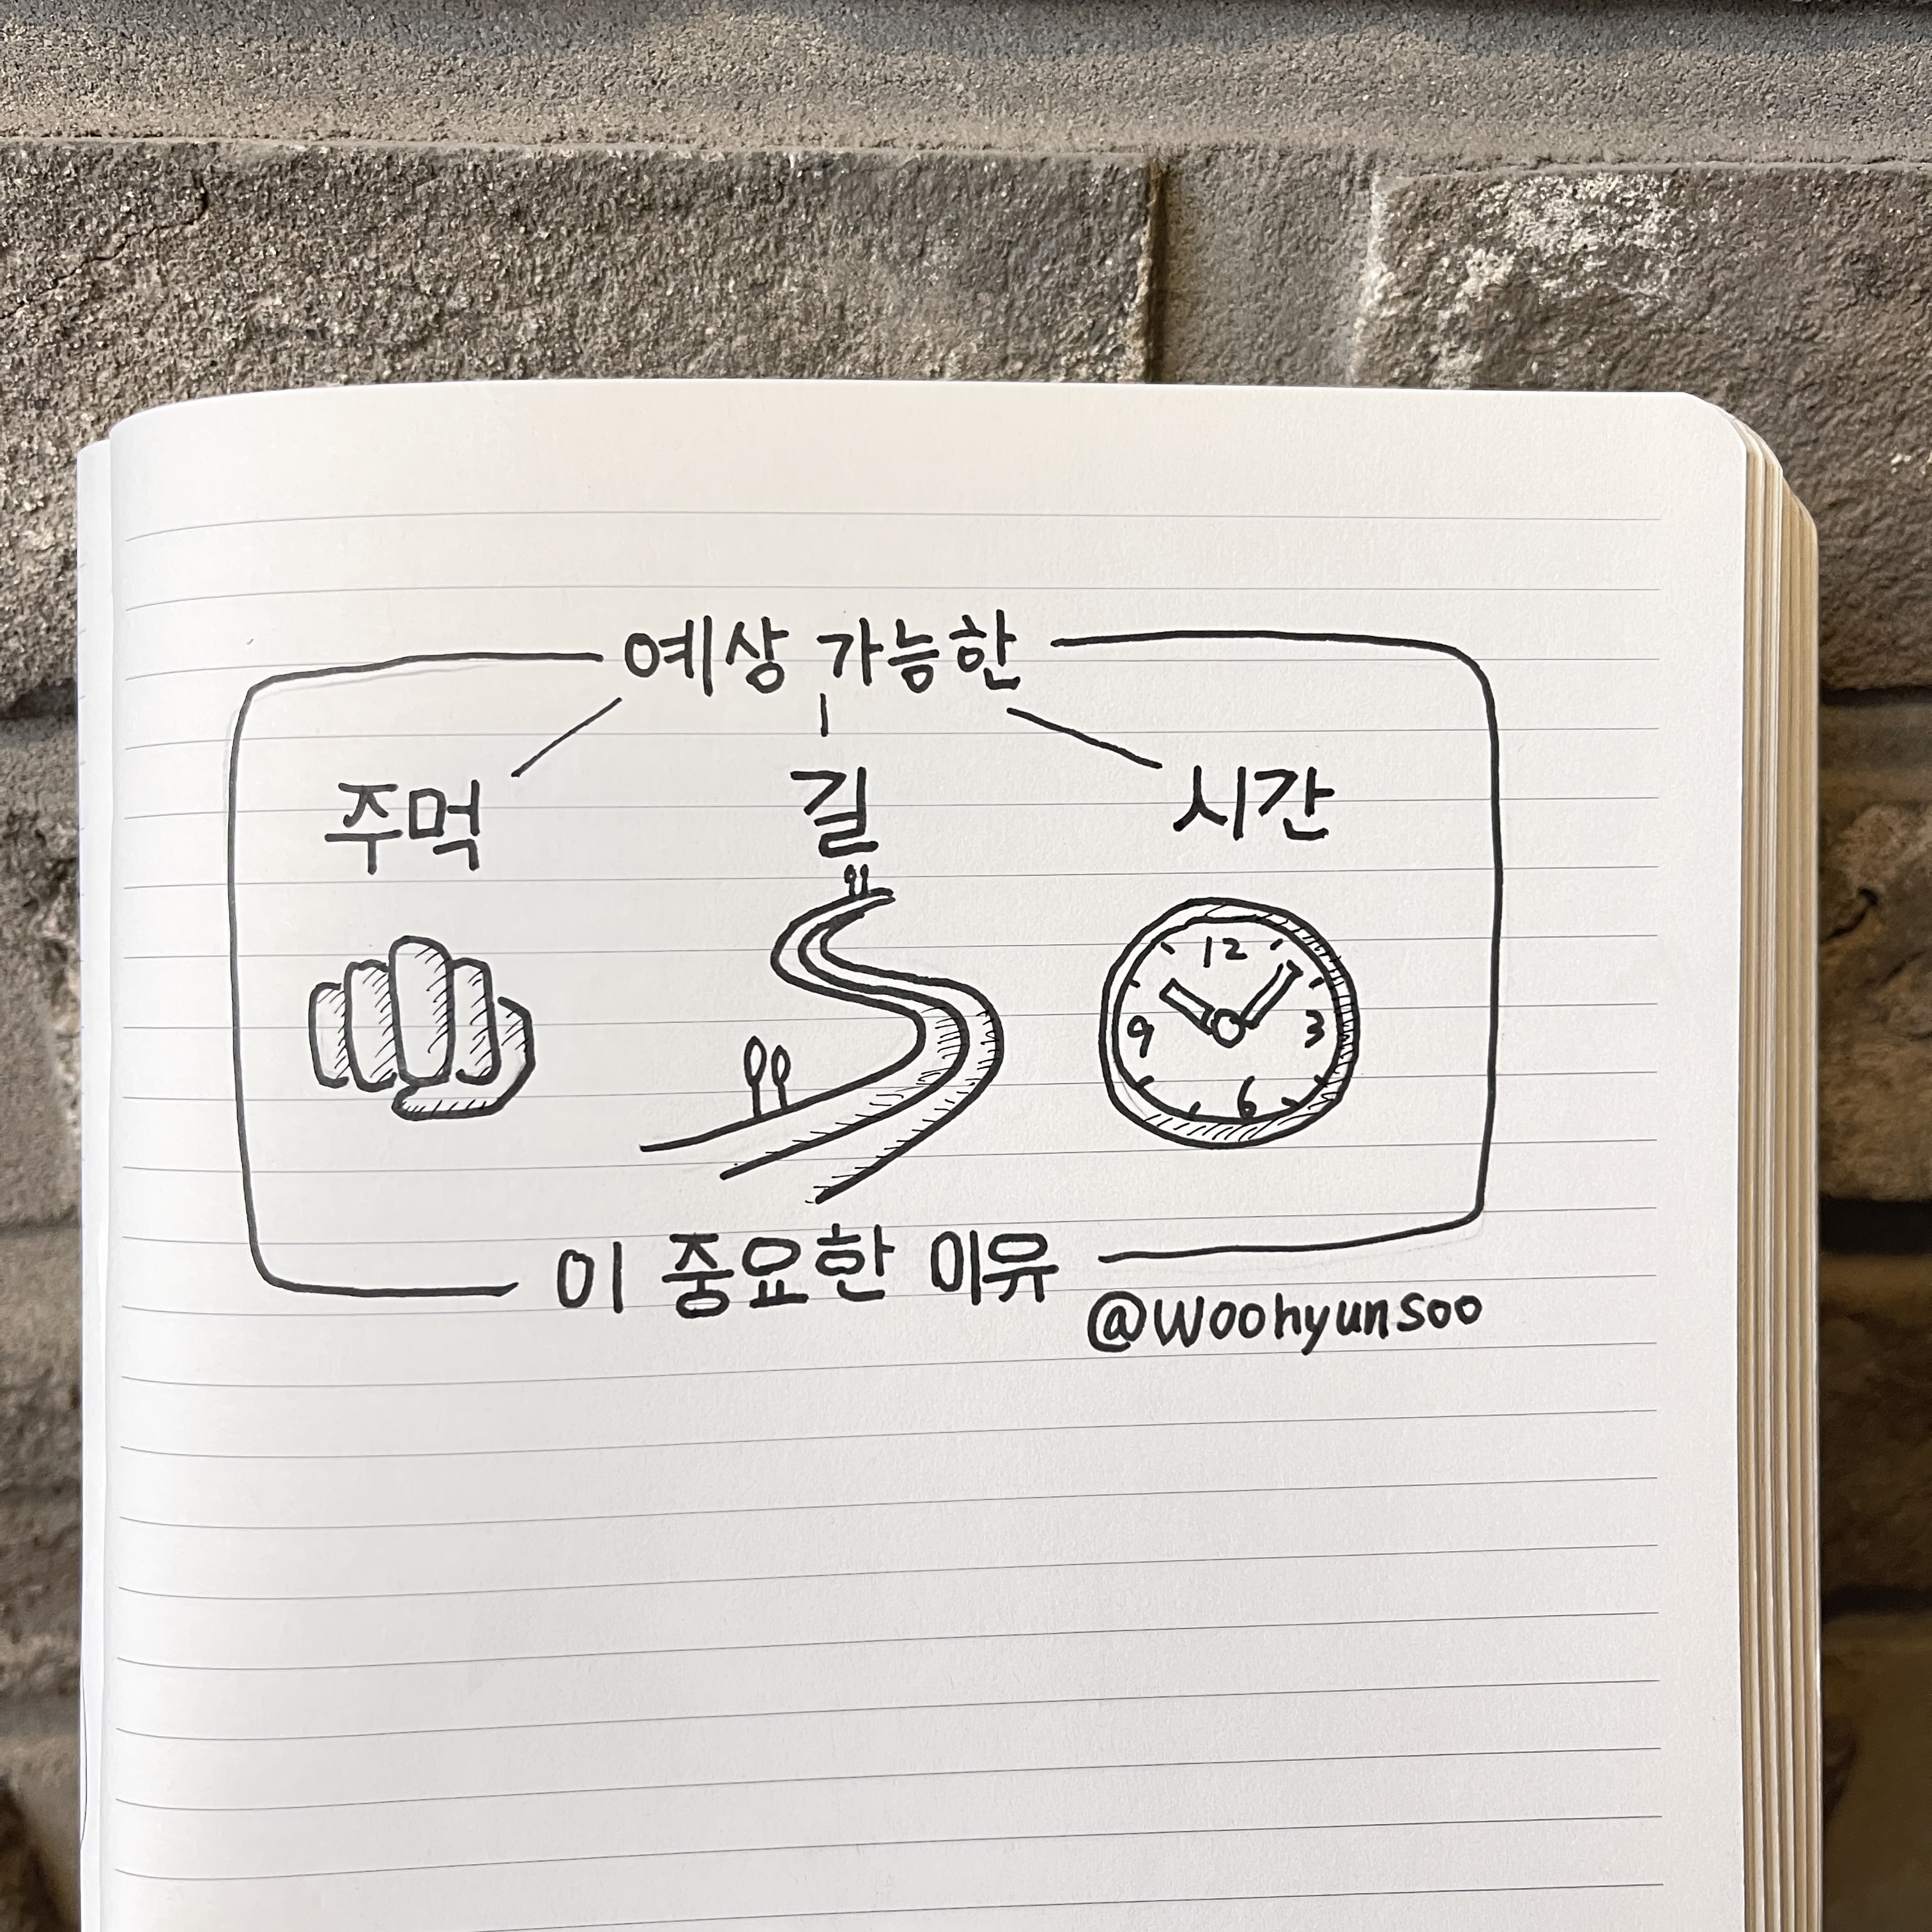 예상 가능한
주먹 길 시간
12
9 3
6
이 중요한 이유
@woohyunsoo